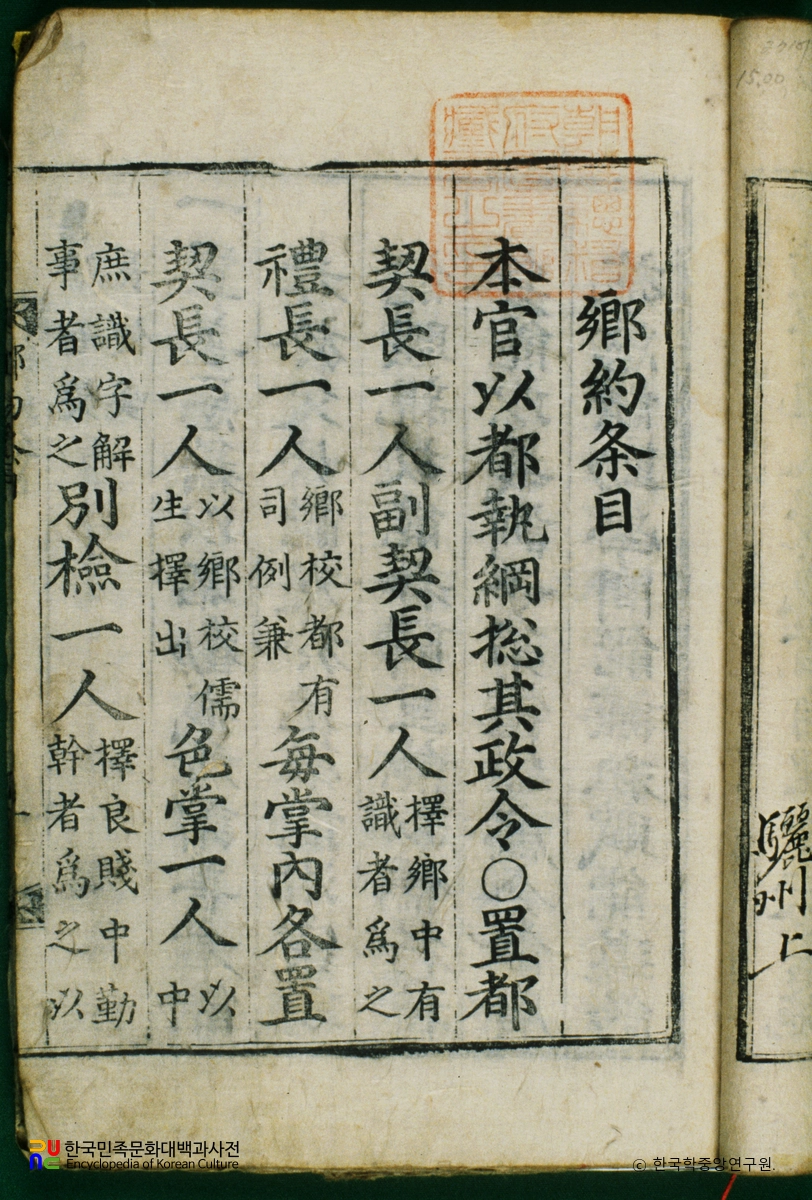 鄕約条目
本官以都執綱捴其政令○置都
契長一人副契長一人擇鄕中有識者爲之
禮長一人鄕校都有司例兼每掌內各置
契長一人以鄕校儒生擇出色掌一人以中
庶識字解事者爲之別檢一人擇良賤中勤幹者爲之以
驪州上
15.00
한국민족문화대백과사전
Encyclopedia of Korean Culture
© 한국학중앙연구원.